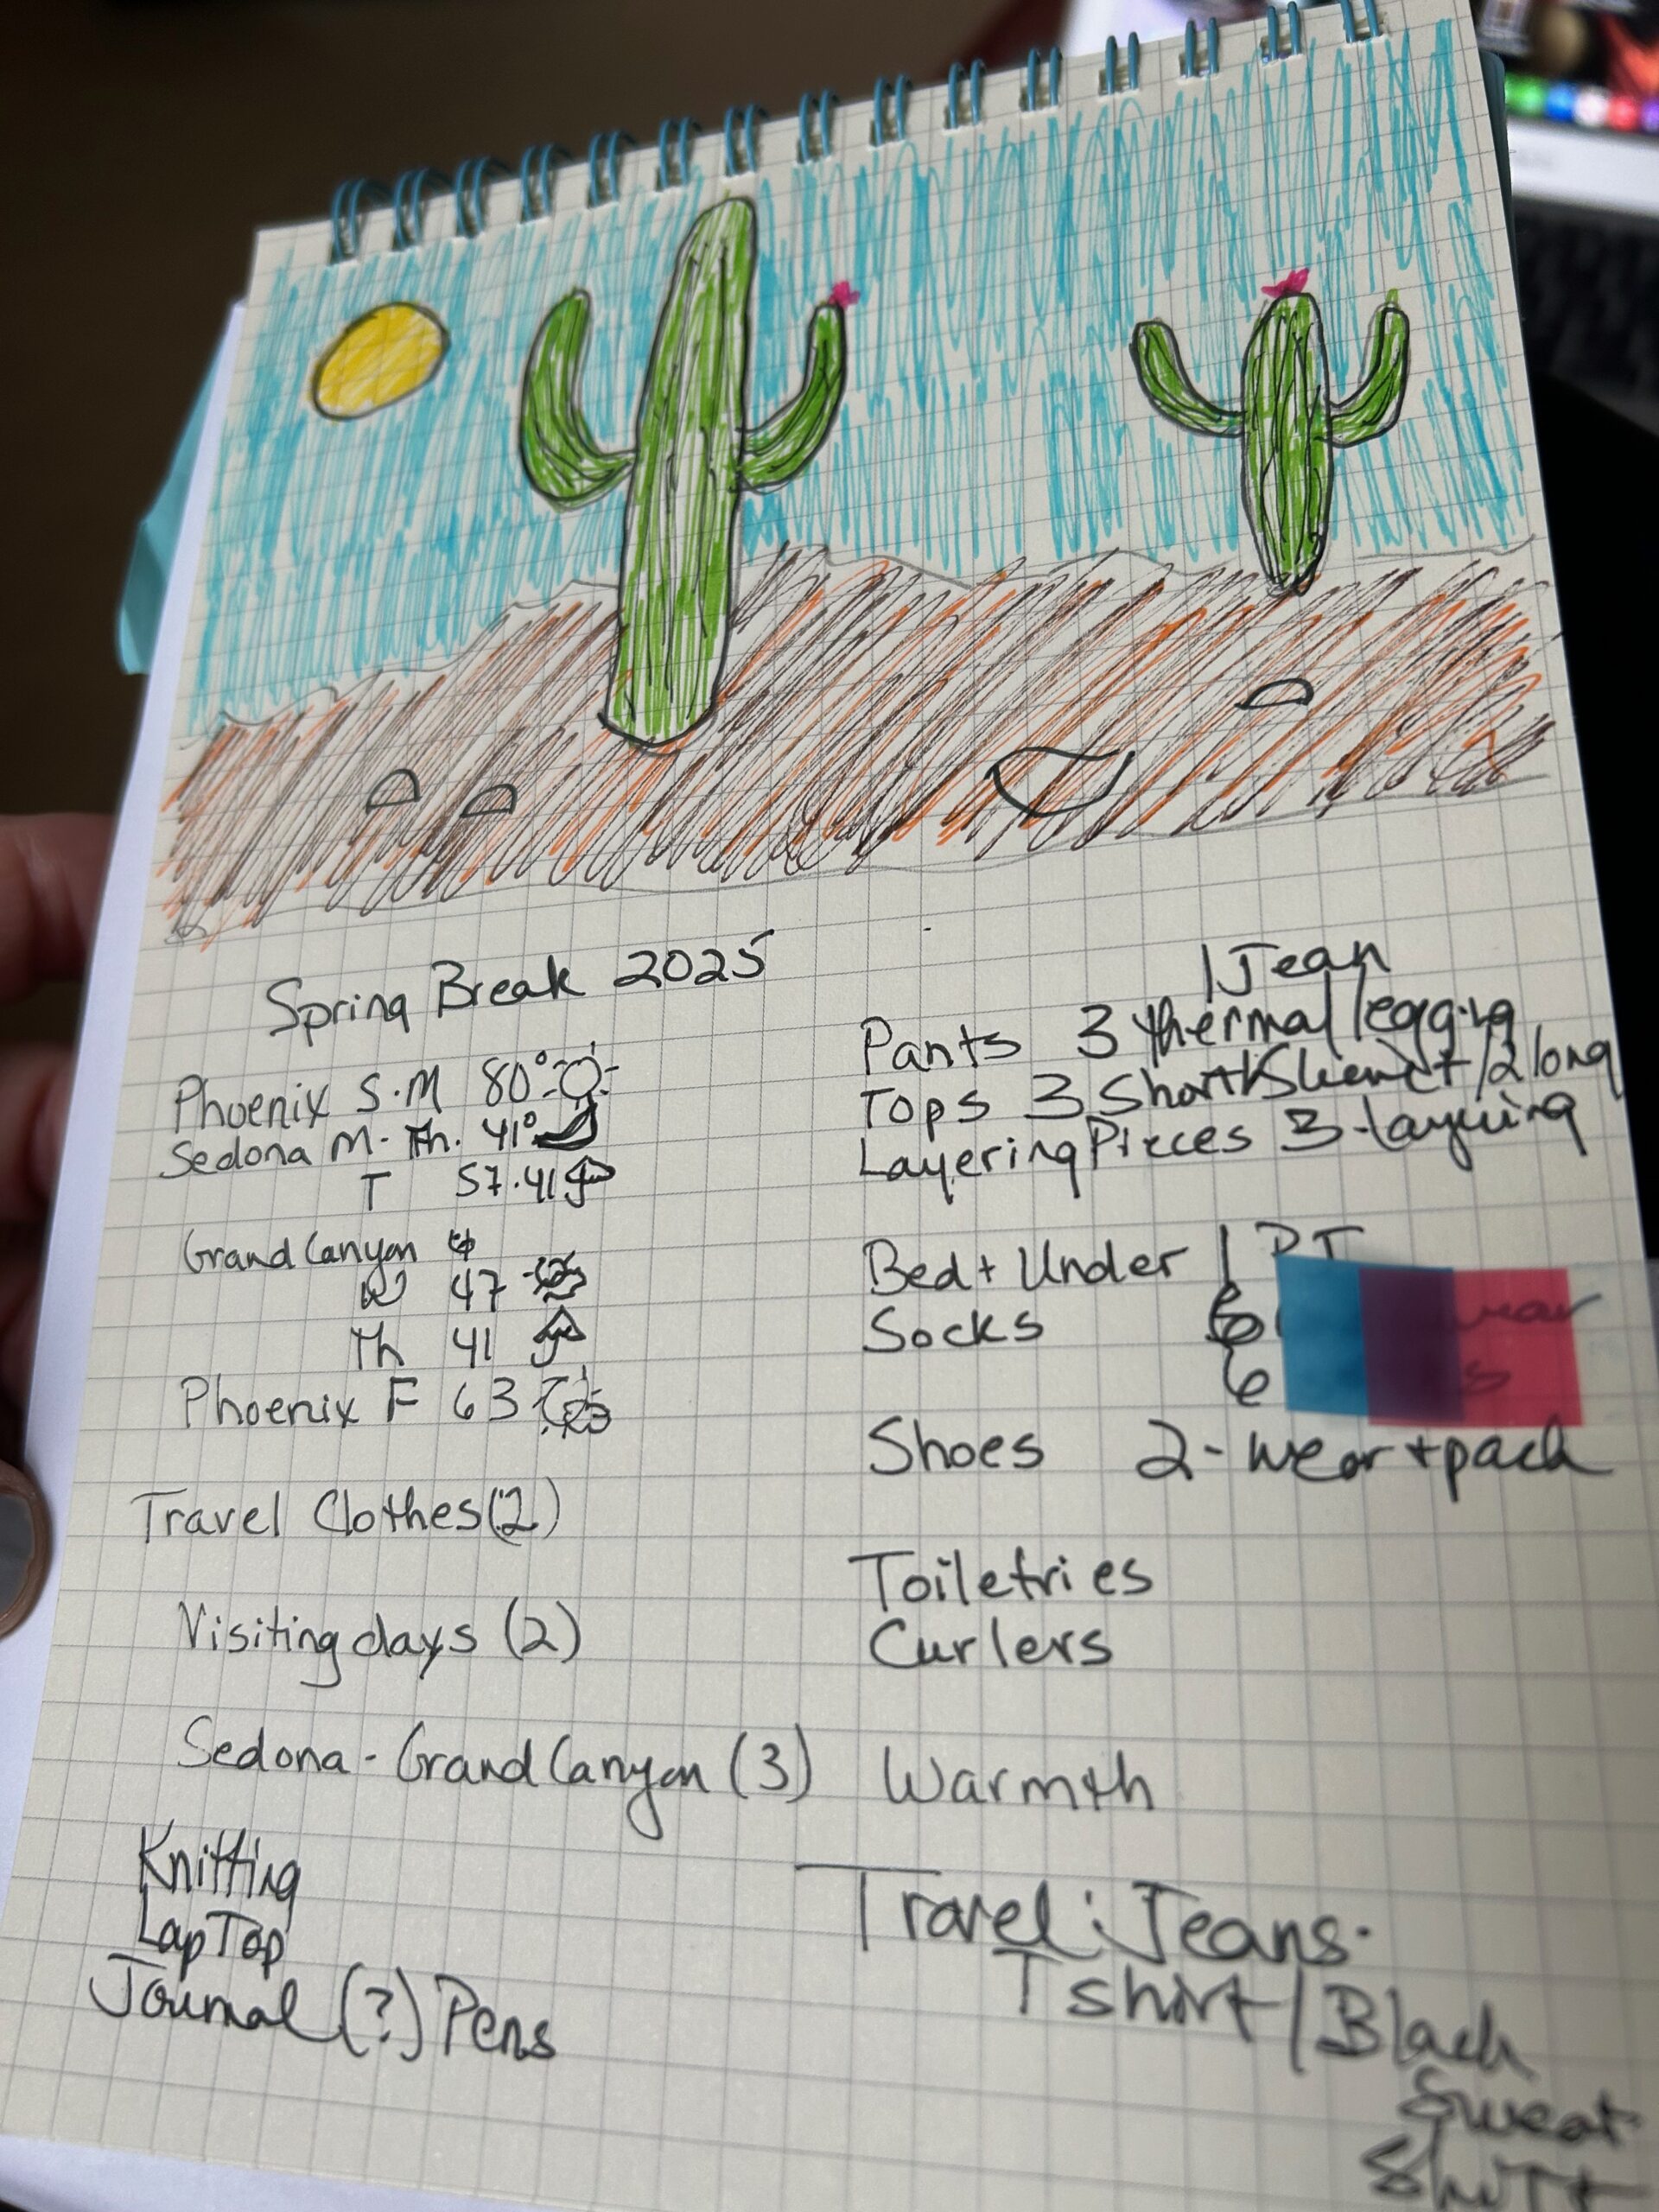 Spring Break 2025
Phoenix S.M 80°
Sedona M-Th. 41°
T 57.41
Grand Canyon
W 47
Th 41
Phoenix F 63
Travel Clothes (2)
Visiting days (2)
Sedona - Grand Canyon (3)
Knitting
LapTop
Journal (?) Pens
1 Jean
Pants 3 thermal legging
Tops 3 Short / 2 long
Layering Pieces 3-Layering
Bed + Under 1 PJ
Socks 6
6
Shoes 2-wear + pack
Toiletries
Curlers
Warmth
Travel: Jeans.
T shirt / Black
Sweat
Shirt